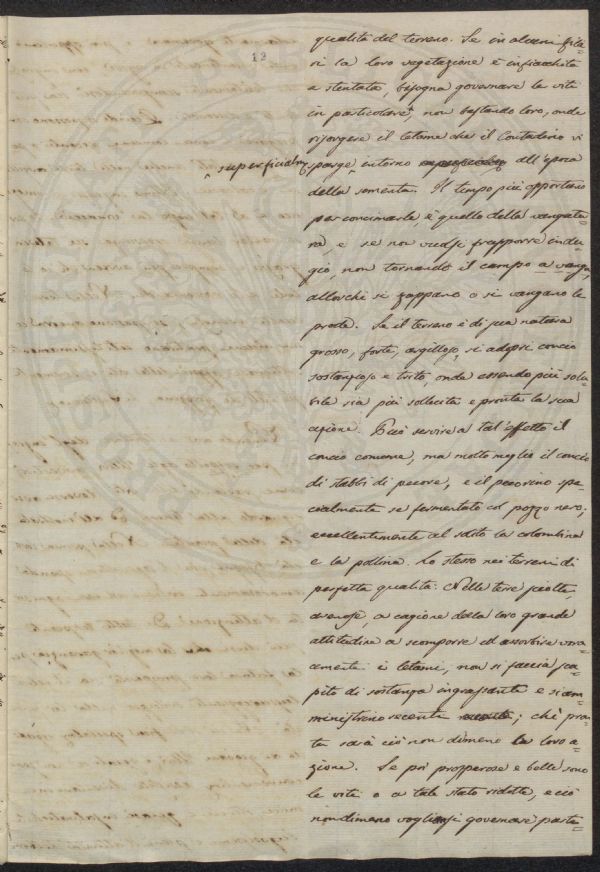 12
qualità del terreno. Se in alcuni fila=
ri la loro vegetazione è infiacchita
e stentata, bisogna governare le viti
in particolare, non bastando loro, onde
risorgere il letame che il Contadino vi
sparge, intorno all'epoca
superficialm.
della sementa. Il tempo più opportuno
per concimarle, è quello della vangatu=
ra, e se non vuolsi frapporre indu=
gio, non tornando il campo a vanga,
allorchè si zappano o si vangano le
prode. Se il terreno è di sua natura
grosso, forte, argilloso, si adopri concio
sostanzioso e trito, onde essendo più solu=
bile sia più sollecita e pronta la sua
azione. Può servire a tal'effetto il
concio comune, ma molto meglio il concio
di stabbi di pecore, e il pecorino spe=
cialmente se fermentato col pozzo nero;
eccellentemente al solito la colombina
e la pollina. Lo stesso nei terreni di
perfetta qualità. Nelle terre sciolte,
arenose, a cagione della loro grande
attitudine a scomporre ed assorbire vora=
cemente i letami, non si faccia ris=
pita di sostanza ingrassante e si am=
ministrino recenti; chè pron=
ta sarà ciò non dimeno la loro a=
zione. Se poi prosperose e belle sono
le viti o a tale stato ridotte, e ciò
nondimeno vogliansi governare parti=